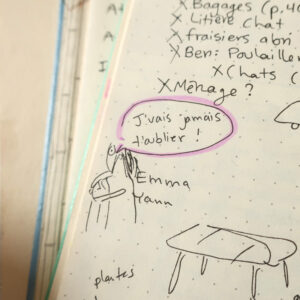 X Bagages (p.40
X Litière chat
X fraisiers abri
X Ben: Poulailler
X Chats (
X Ménage ?
J'vais jamais
t'oublier !
Emma
Yann
plantes